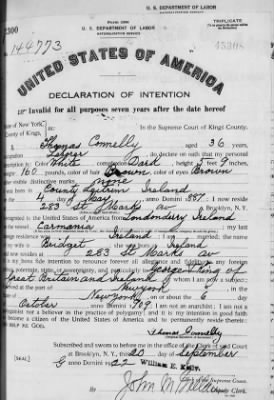 U. S. DEPARTMENT OF LABOR
Form 2203
TRIPLICATE
U. S. DEPARTMENT OF LABOR
NATURALIZATION SERVICE
No. 144773
UNITED STATES OF AMERICA
DECLARATION OF INTENTION
Invalid for all purposes seven years after the date hereof
of New York,
County of Kings,
In the Supreme Court of Kings County.
Thomas Connelly, aged 36 years,
occupation, do declare on oath that my personal
description is: Color White, complexion Dark, height 5 feet 9 inches,
weight 160 pounds, color of hair Brown, color of eyes Brown
other visible distinctive marks none
County Ireland
on the 4 day of May, anno Domini 1887; I now reside
at 283 St Marks av, Brooklyn, N.Y.
I emigrated to the United States of America from Londonderry Ireland
on the vessel Carmania; my last
foreign residence was Ireland; I am married; the name
of my wife is Bridget; she was born in Ireland
and now resides at 283 St Marks av
It is my bona fide intention to renounce forever all allegiance and fidelity to any foreign
prince, potentate, state, or sovereignty, and particularly to George V King of
Great Britain and Ireland, of whom I am now a subject;
I arrived at the port of New York, in the
State of New York, on or about the day
of October, anno Domini 1909; I am not an anarchist; I am not a
polygamist nor a believer in the practice of polygamy; and it is my intention in good faith
to become a citizen of the United States of America and to permanently reside therein:
SO HELP ME GOD.
Thomas Connelly
Subscribed and sworn to before me in the office of the Clerk of said Court
at Brooklyn, N.Y., this 20 day of September
[SEAL]
anno Domini 1922
William E. Kelly,
Clerk of the Supreme Court.
By John M.
Deputy Clerk.